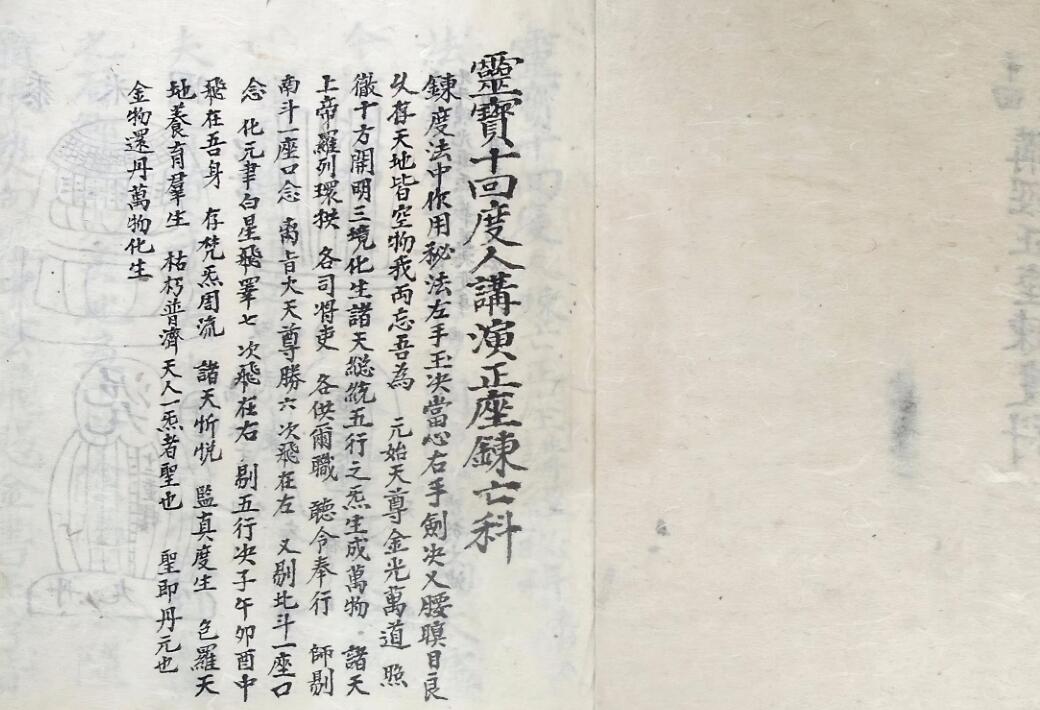 靈寶十回度人講演正座鍊亡科
鍊度法中作用秘法左手玉決當心右手劍決又腰瞑目良
乆存天地皆空物我両忘吾為 元始天尊金光萬道 照
徹十方開明三境化生諸天總統五行之炁生成萬物 諸天
上帝羅列環拱 各司将吏 各供爾職 聽令奉行 師剔
南斗一座口念 天尊勝六次飛在左 又剔北斗一座口
念 化元 白星飛 七次飛在右 剔五行决子午夘酉中
飛在吾身 存梵炁周流 諸天忻悅 監真度生 色羅天
地養育羣生 枯朽普濟天人一炁者聖也 聖即丹元也
金物還丹萬物化生